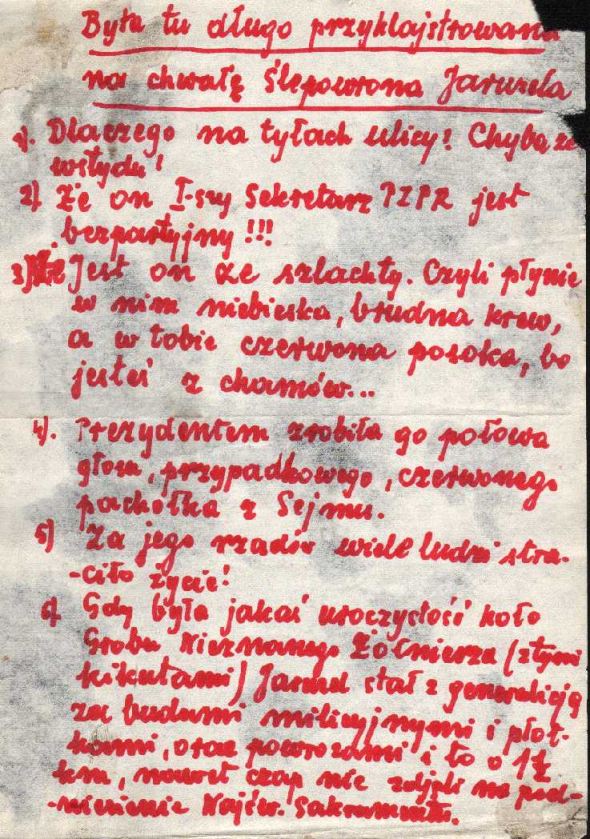 Była tu długo przyklajstrowana
na chwałę Ślepowrona Jaruzela
1). Dlaczego na tyłach ulicy? Chyba ze
wstydu!
2) Że on I-szy Sekretarz PZPR jest
bezpartyjny!!!
3) Jest on ze szlachty. Czyli płynie
w nim niebieska, brudna krew,
a w tobie czerwona posoka, bo
jesteś z chamów...
4). Prezydentem zrobiła go połowa
głosu, przypadkowego, czerwonego
pachołka z Sejmu.
5) Za jego rządów wiele ludzi stra-
-ciło życie!
6) Gdy była jakaś uroczystość koło
Grobu Nieznanego Żołnierza (z tymi
kikutami) Jaruzel stał z generalicją
za budami milicyjnymi i płot-
kami, oraz powrozami i to o 1
km, nawet czap nie zdjęli na pod-
-niesienie Najśw. Sakramentu.